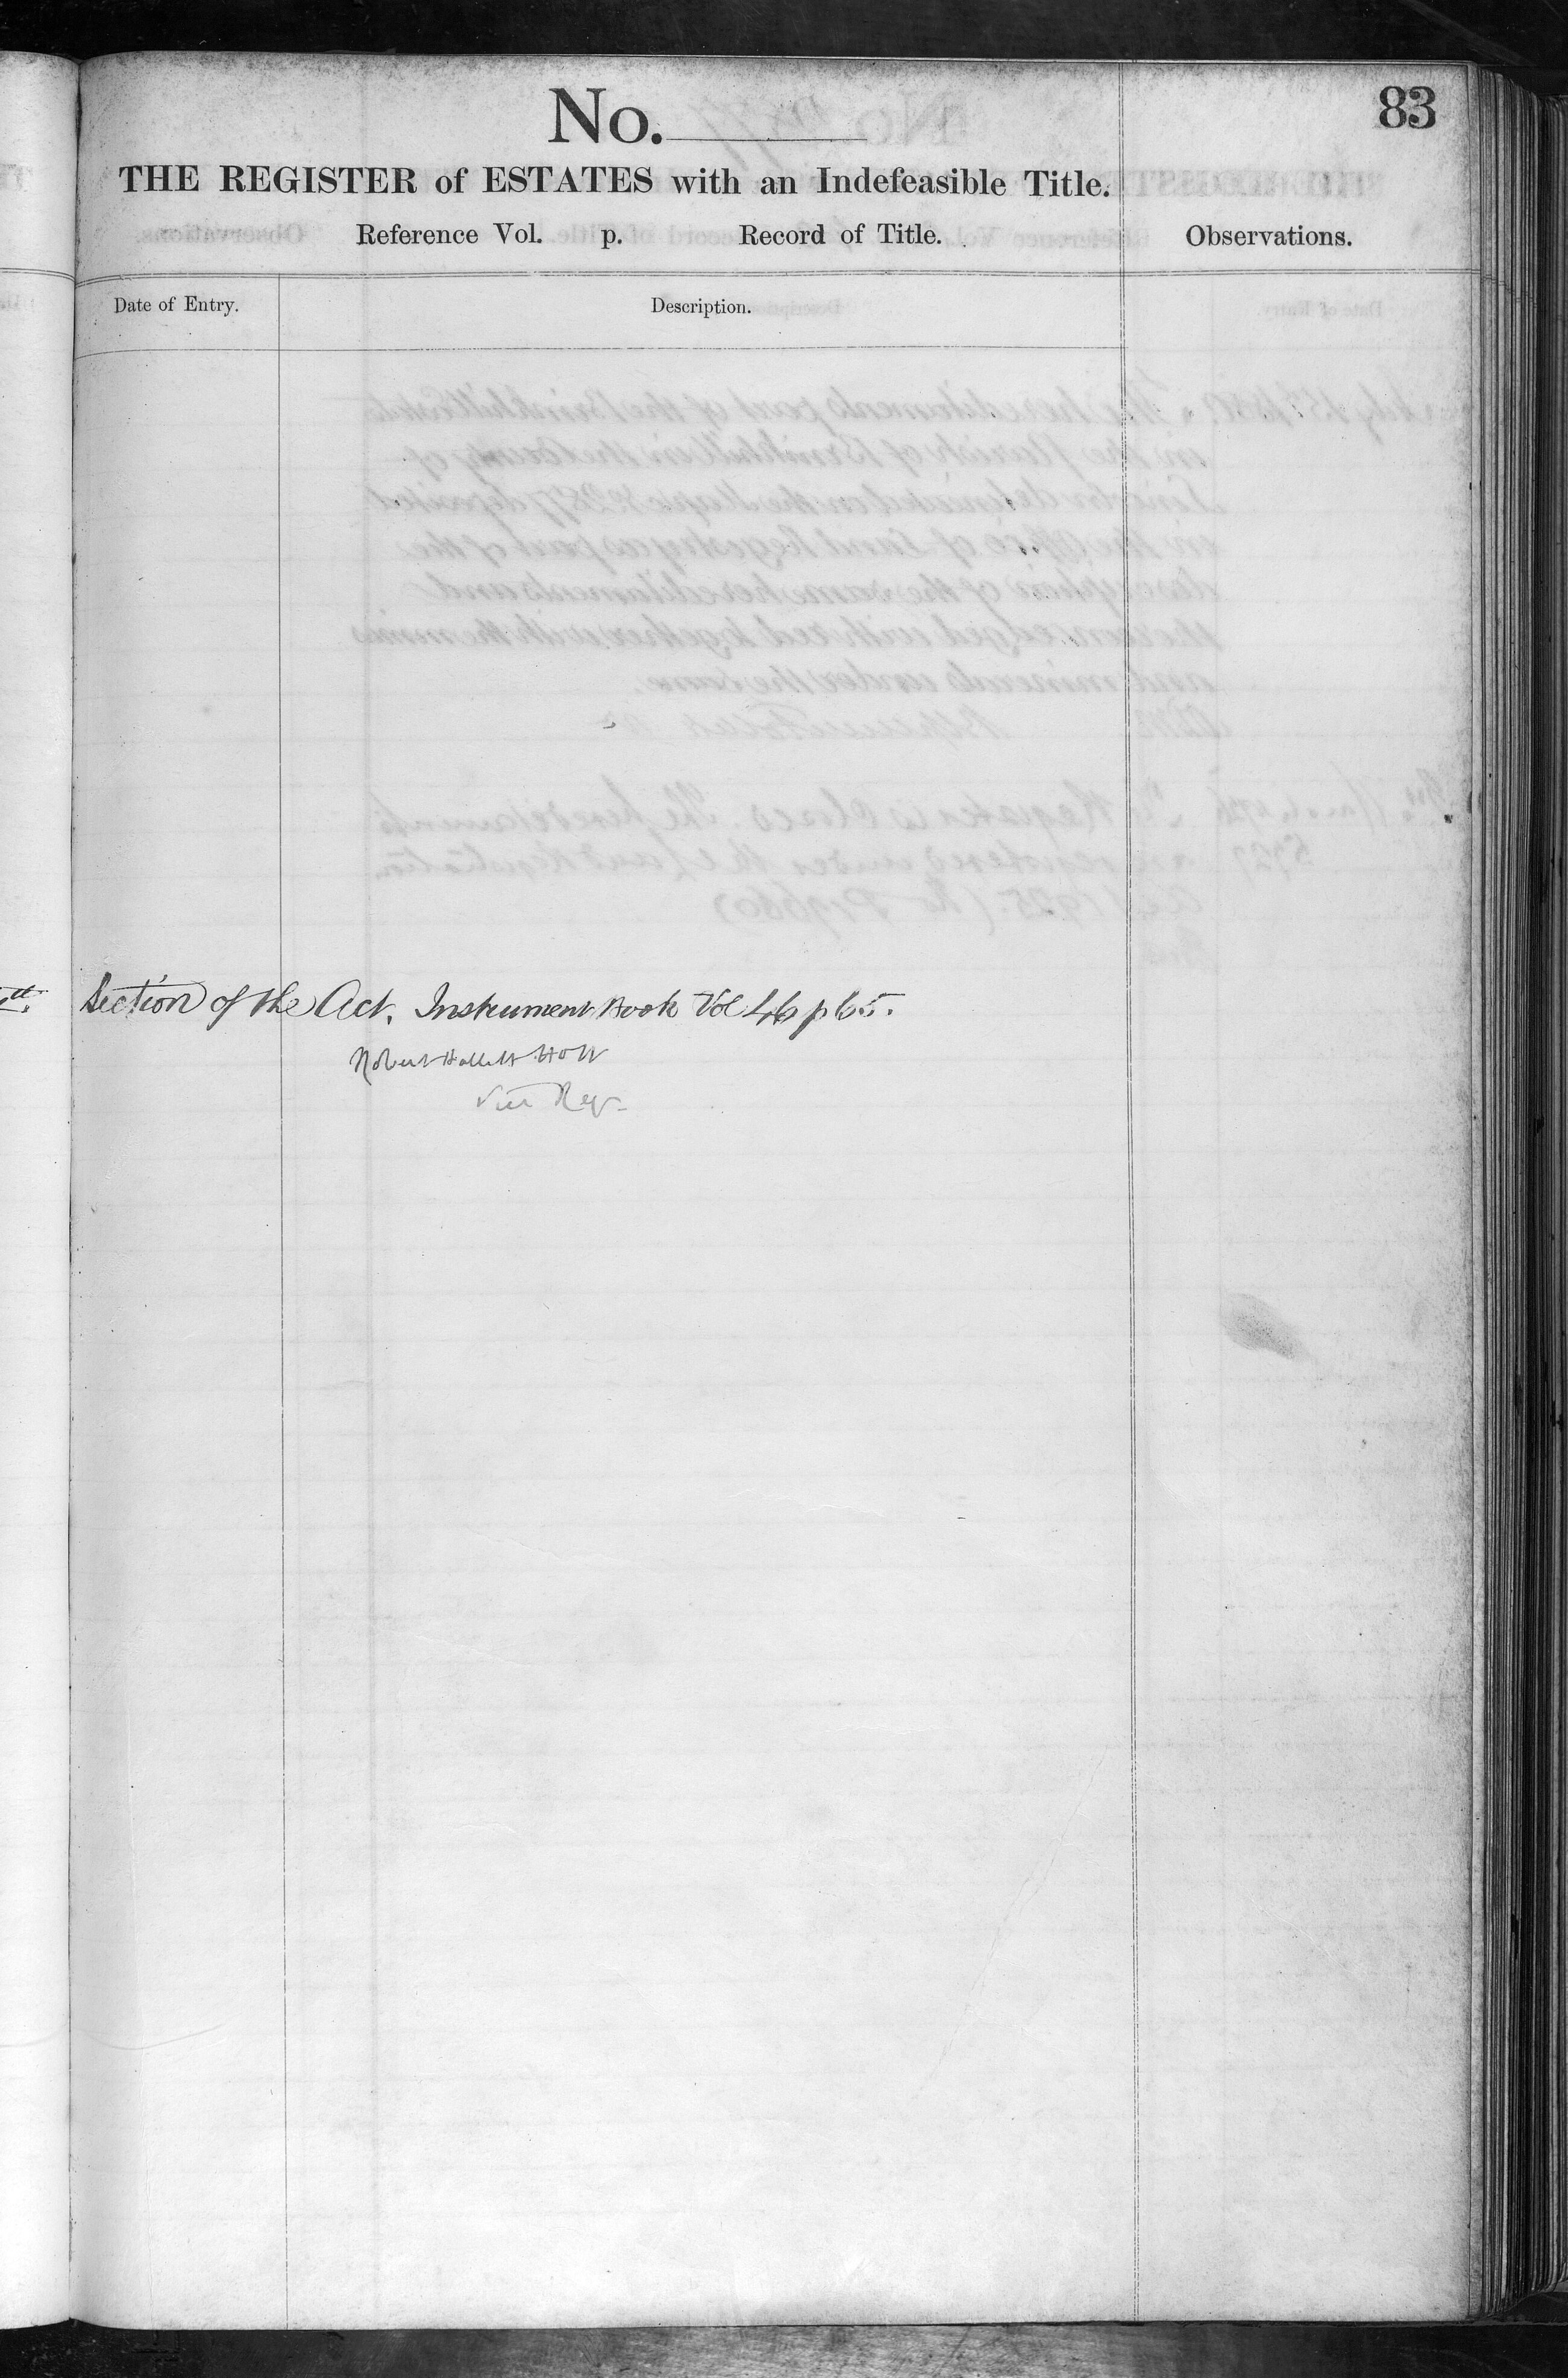 83
No.
THE REGISTER of ESTATES with an Indefeasible Title.
Reference Vol. p. Record of Title.
Observations.
Date of Entry.
Description.
Section of the Act. Instrument Book Vol 46 p 65.
Robert Hallett Holt
Reg.